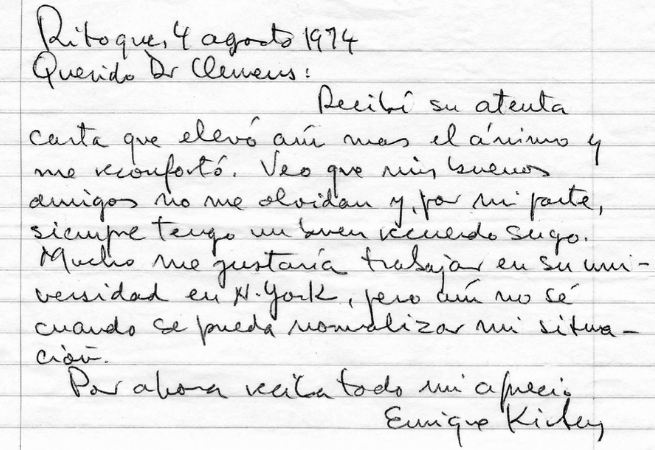 Ritoque, 4 agosto 1974
Querido Dr Clemens:
Recibí su atenta
carta que elevó aún mas el ánimo y
me reconfortó. Veo que mis buenos
amigos no me olvidan y, por mi parte,
siempre tengo un buen recuerdo suyo.
Mucho me gustaría trabajar en su uni-
versidad en N. York, pero aún no sé
cuando se pueda normalizar mi situa-
ción.
Por ahora reciba todo mi aprecio
Enrique Kirberg